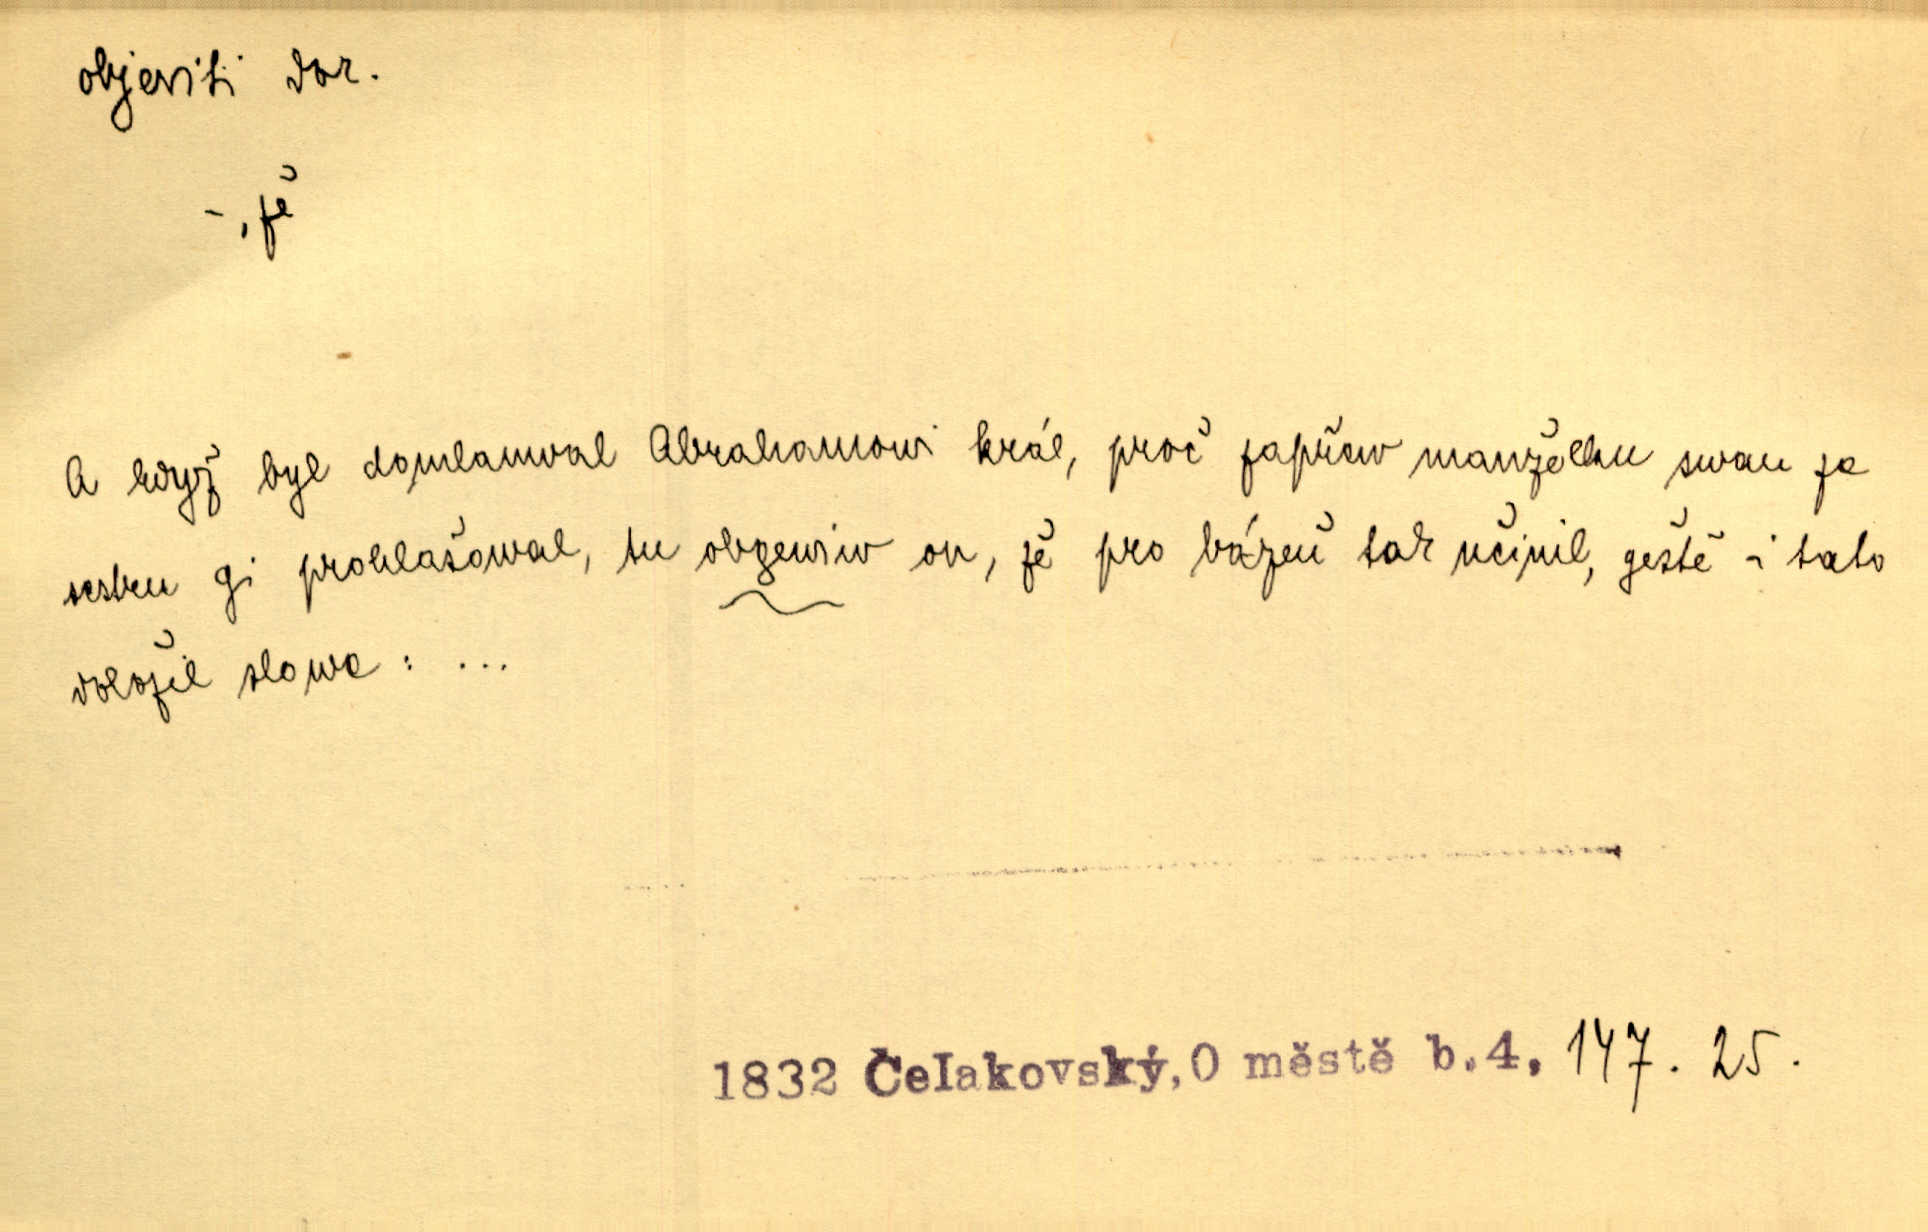 objeviti dok.
-, že
A když byl domlauwal Abrahamowi král, proč zapřew manželku swau za
sestru gi prohlašowal, tu obgewiw on, že pro bázeň tak učinil, geště i tato
doložil slowa : ...
1832 Čelakovský, O městě b. 4, 147. 25.